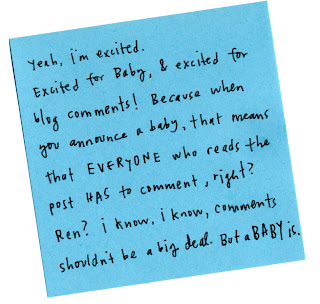 Yeah, i'm excited.
Excited for Baby, & excited for
blog comments! Because when
you announce a baby, that means
that EVERYONE who reads the
post HAS to comment, right?
Ren? i know, i know, comments
shouldn't be a big deal. But a BABY is.